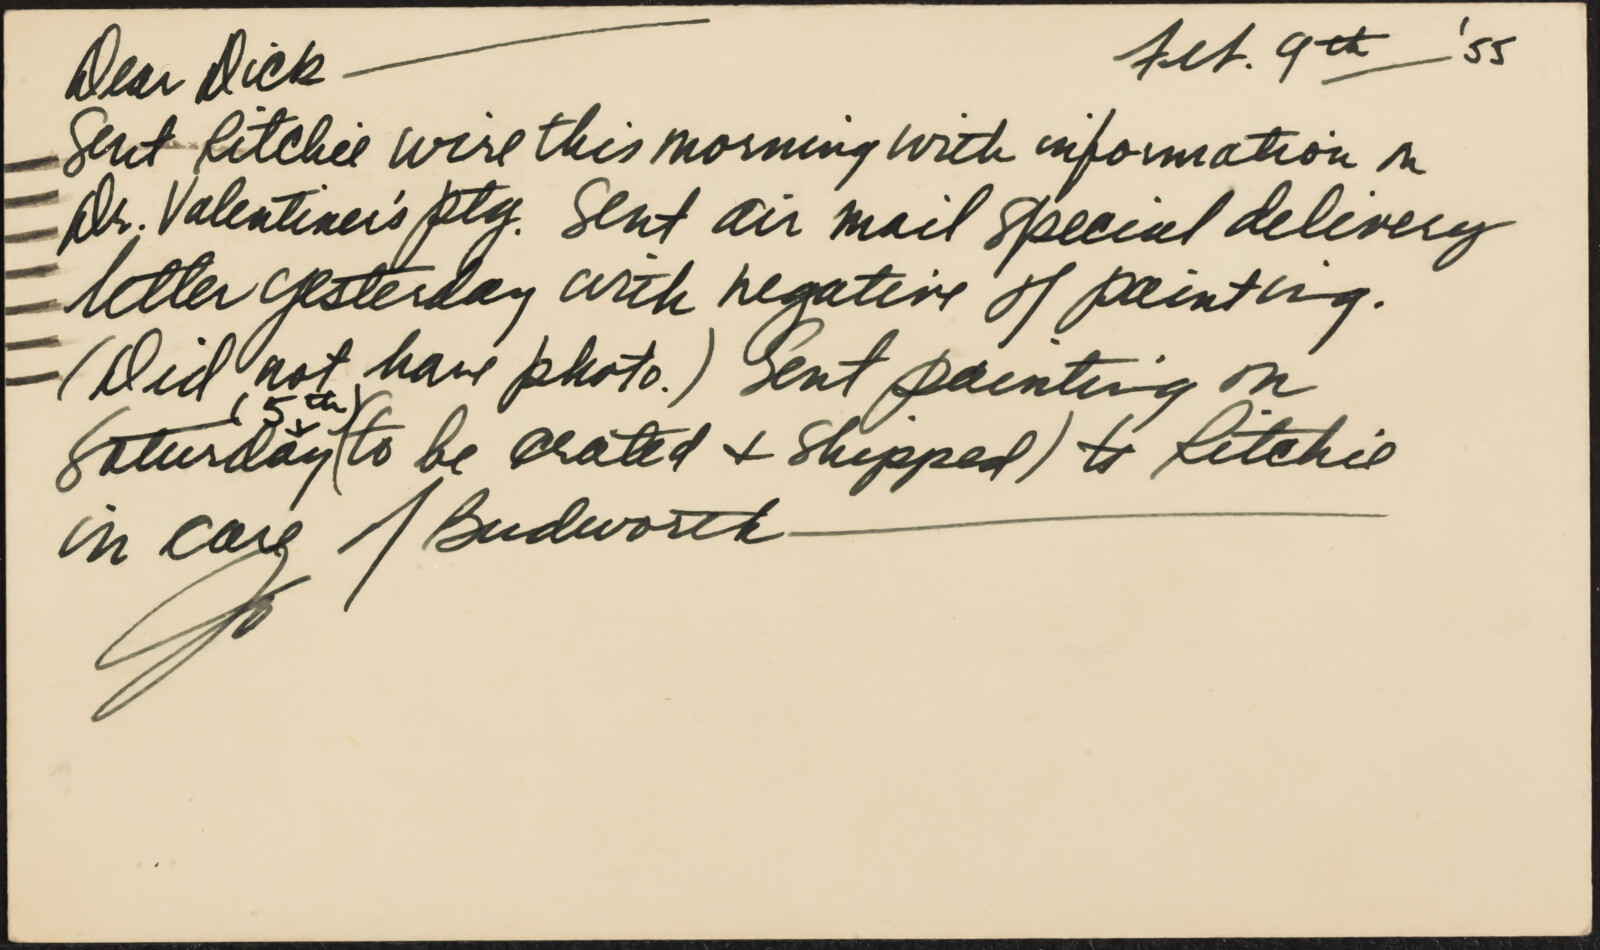 Dear Dick — Feb. 9th — '55
Sent Ritchie wire this morning with information on
Dr. Valentiner's ptg. Sent air mail special delivery
letter yesterday with negative of painting.
(Did not have photo.) Sent painting on
(5th)
Saturday (to be crated + shipped) to Ritchie
in care of Budworth —
Jo